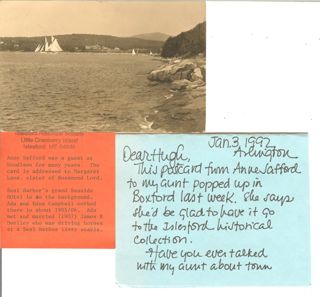 Little Cranberry Island
Islesford, ME 04646
Anne Safford was a guest at
Woodlawn for many years. The
card is addressed to Margaret
Lord, sister of Rosamond Lord.
Seal Harbor's grand Seaside
Hotel in the background.
Ada and Edna Campbell worked
there in about 1905/06. Ada
met and married (1907) James R
who was driving horses
at a Seal Harbor livery stable.
Jan. 3, 1992
Arlington
Dear Hugh,
This postcard from Anne Safford
to my aunt popped up in
Boxford last week. She says
she'd be glad to have it go
to the Islesford historical
Collection.
Have you ever talked
with my aunt about town